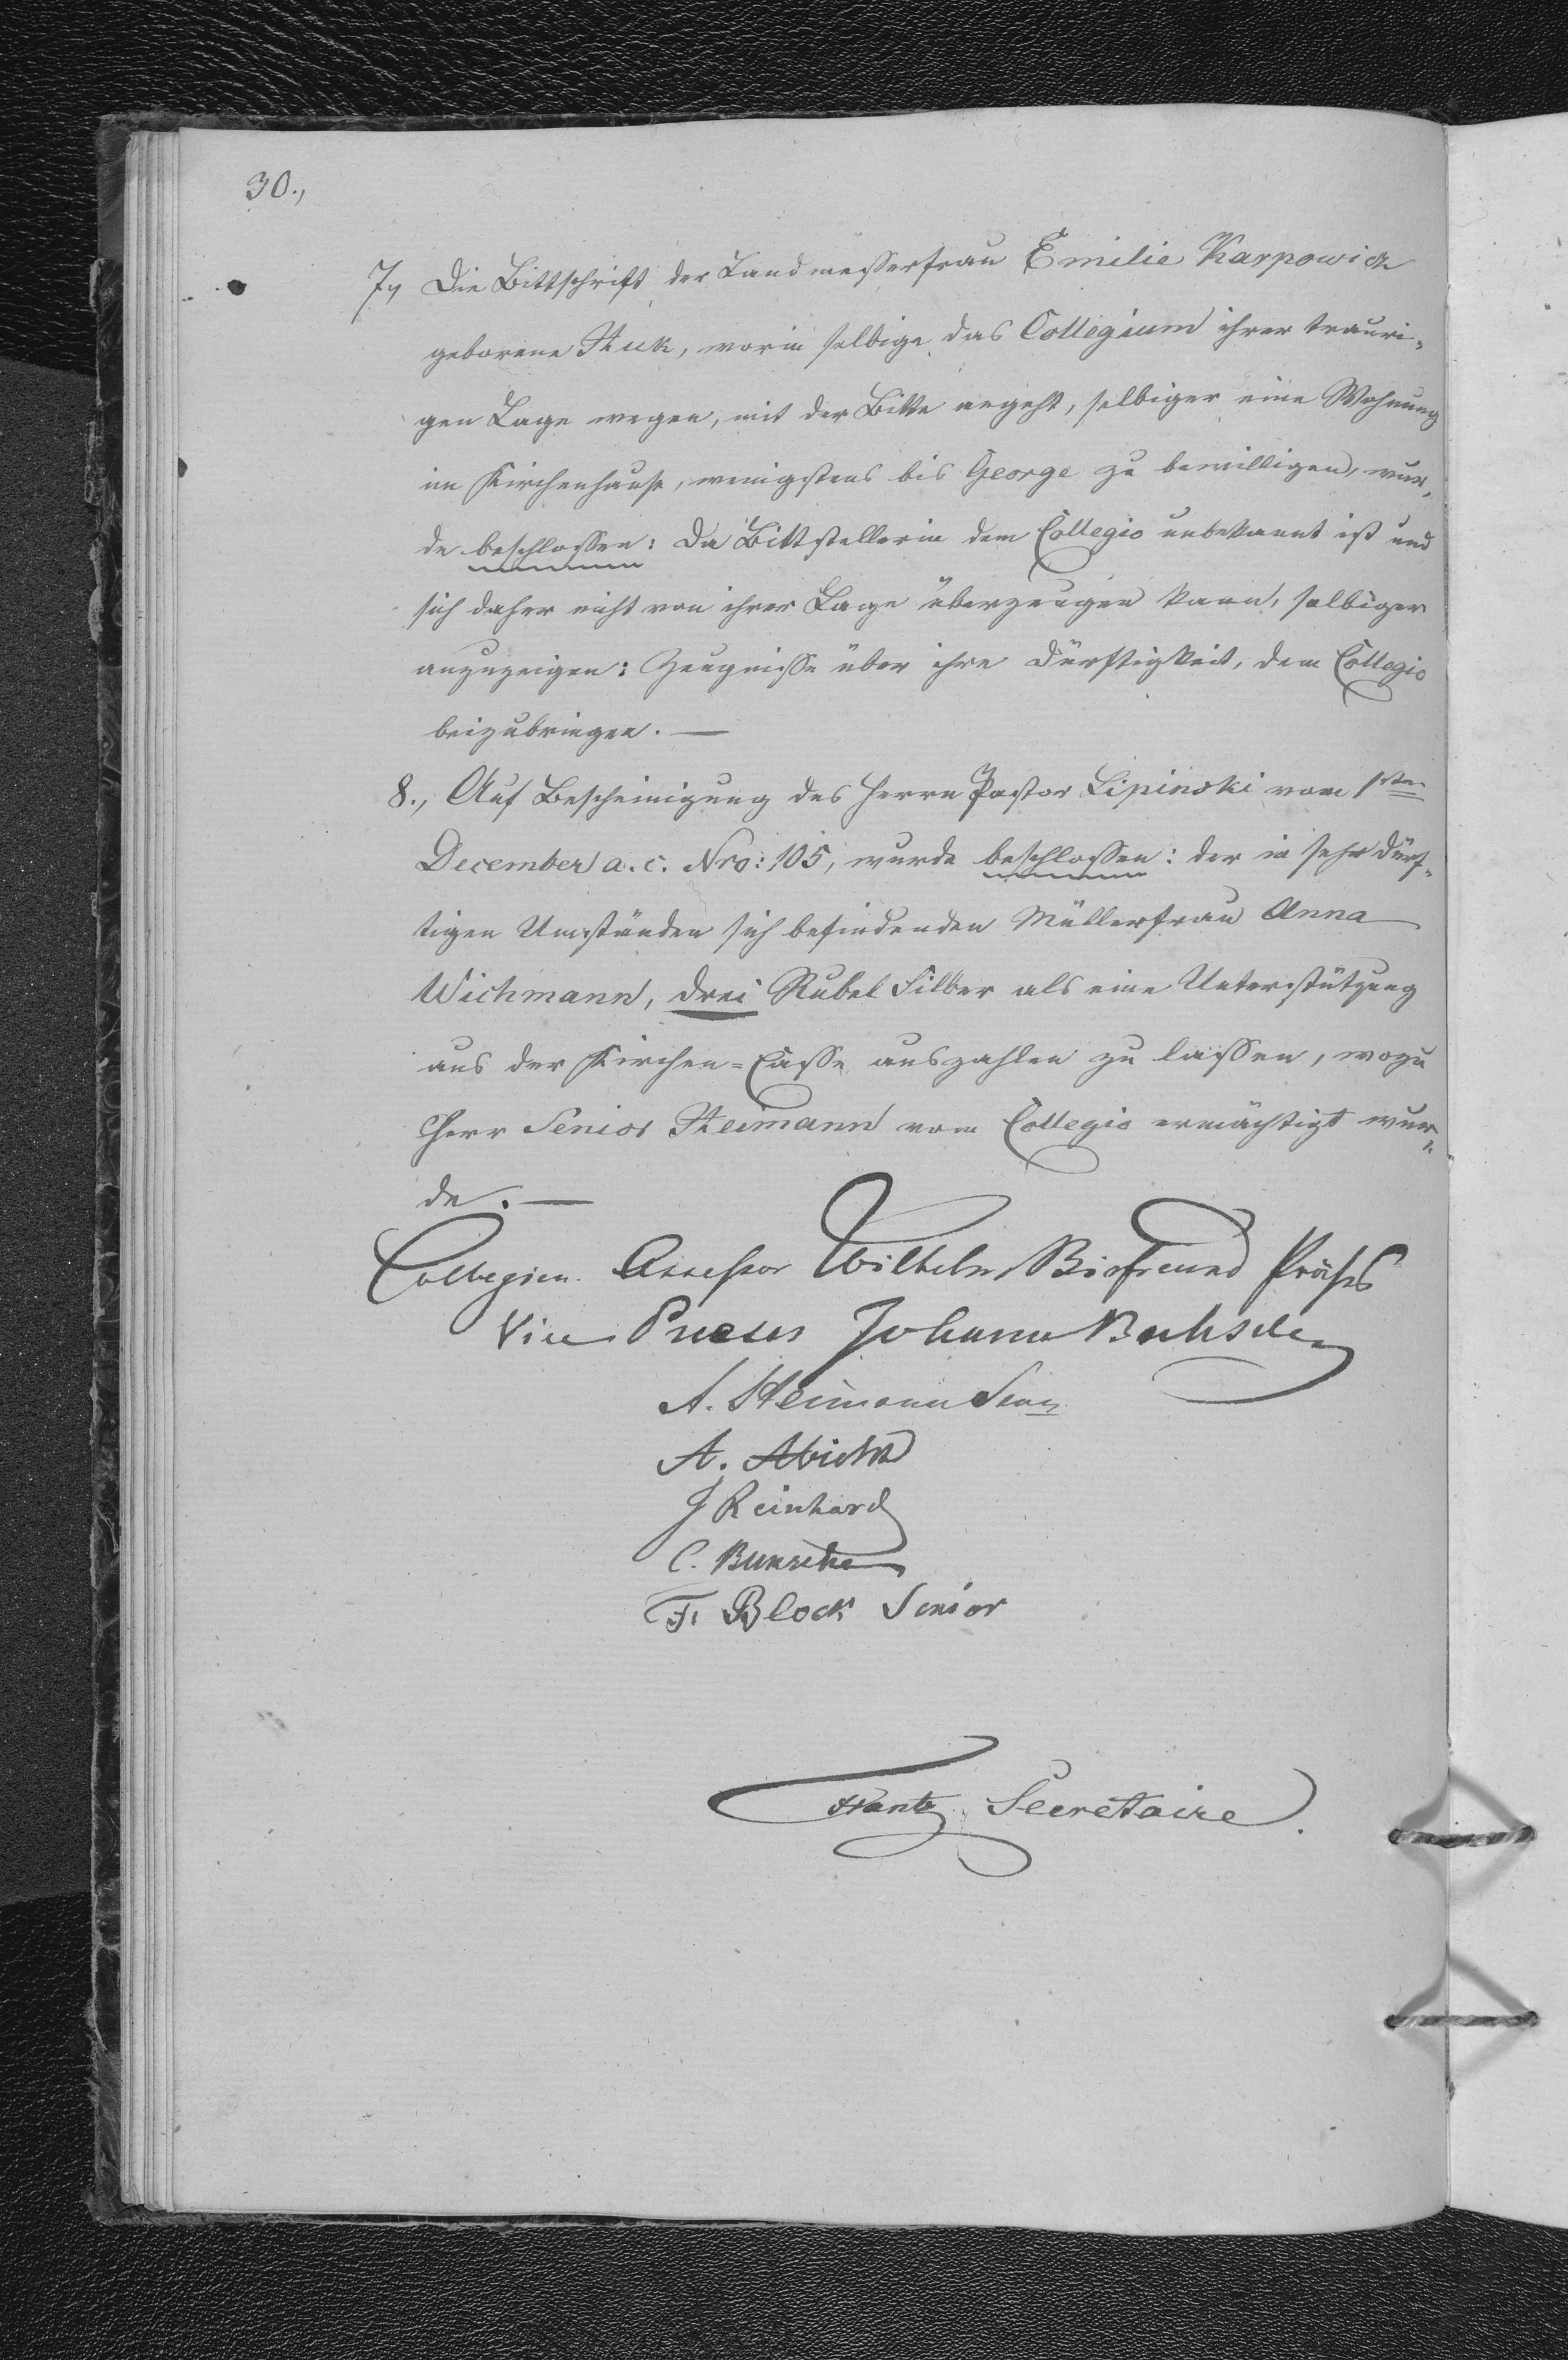 30.,
7, Die Bittschrift der Landmesserfrau Emilie Karpowicz
geborene Stuk, worin selbige das Collegium ihrer trauri-
gen Lage wegen, mit der Bitte angeht, selbiger eine Wohnung
im Kirchenhause, wenigstens bis George zu bewilligen, wur-
de beschlossen: Da Bittstellerin dem Collegio unbekannt ist und
sich daher nicht von ihrer Lage überzeugen kann, selbiger
anzuzeigen: Zeugnisse über ihre Dürftigkeit, dem Collegio
beizubringen. —
8., Auf Bescheinigung des Herrn Pastor Lipinski vom 1sten
December a. c. Nro: 105, wurde beschlossen: der in sehr dürf-
tigen Umständen sich befindenden Müllerfrau Anna
Wichmann, drei Rubel Silber als eine Unterstützung
aus der Kirchen=Casse auszahlen zu lassen, wozu
Herr Senior Heimann vom Collegio ermächtigt wur-
de. —
Collegien Assessor Wilhelm Präses
Vice Preses Johann
A. Heimann Sen
A. Abicht
J Reinhard
C.
F. Block Senior
Frantz Secretaire.